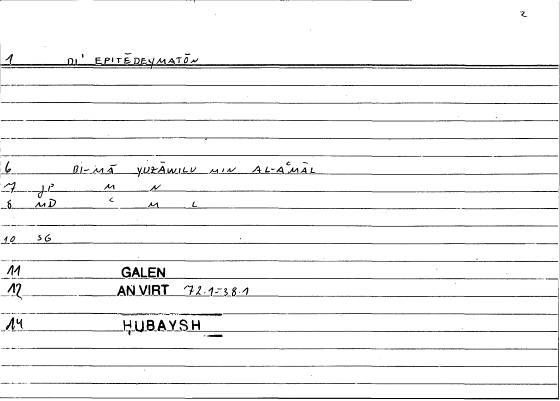 2
1 DI' EPITĒDEYMATŌN
6 BI-MĀ YUZĀWILU MIN AL-AʿMĀL
7 JP M N
8 MD ʿ M L
10 SG
11 GALEN
12 AN VIRT 72.1=38.1
14 ḤUBAYSH